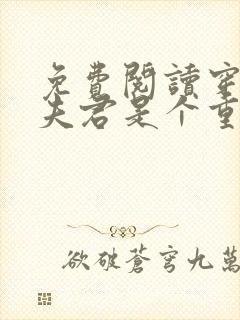 免費閱讀穿
夫君是個重
欲破蒼穹九萬